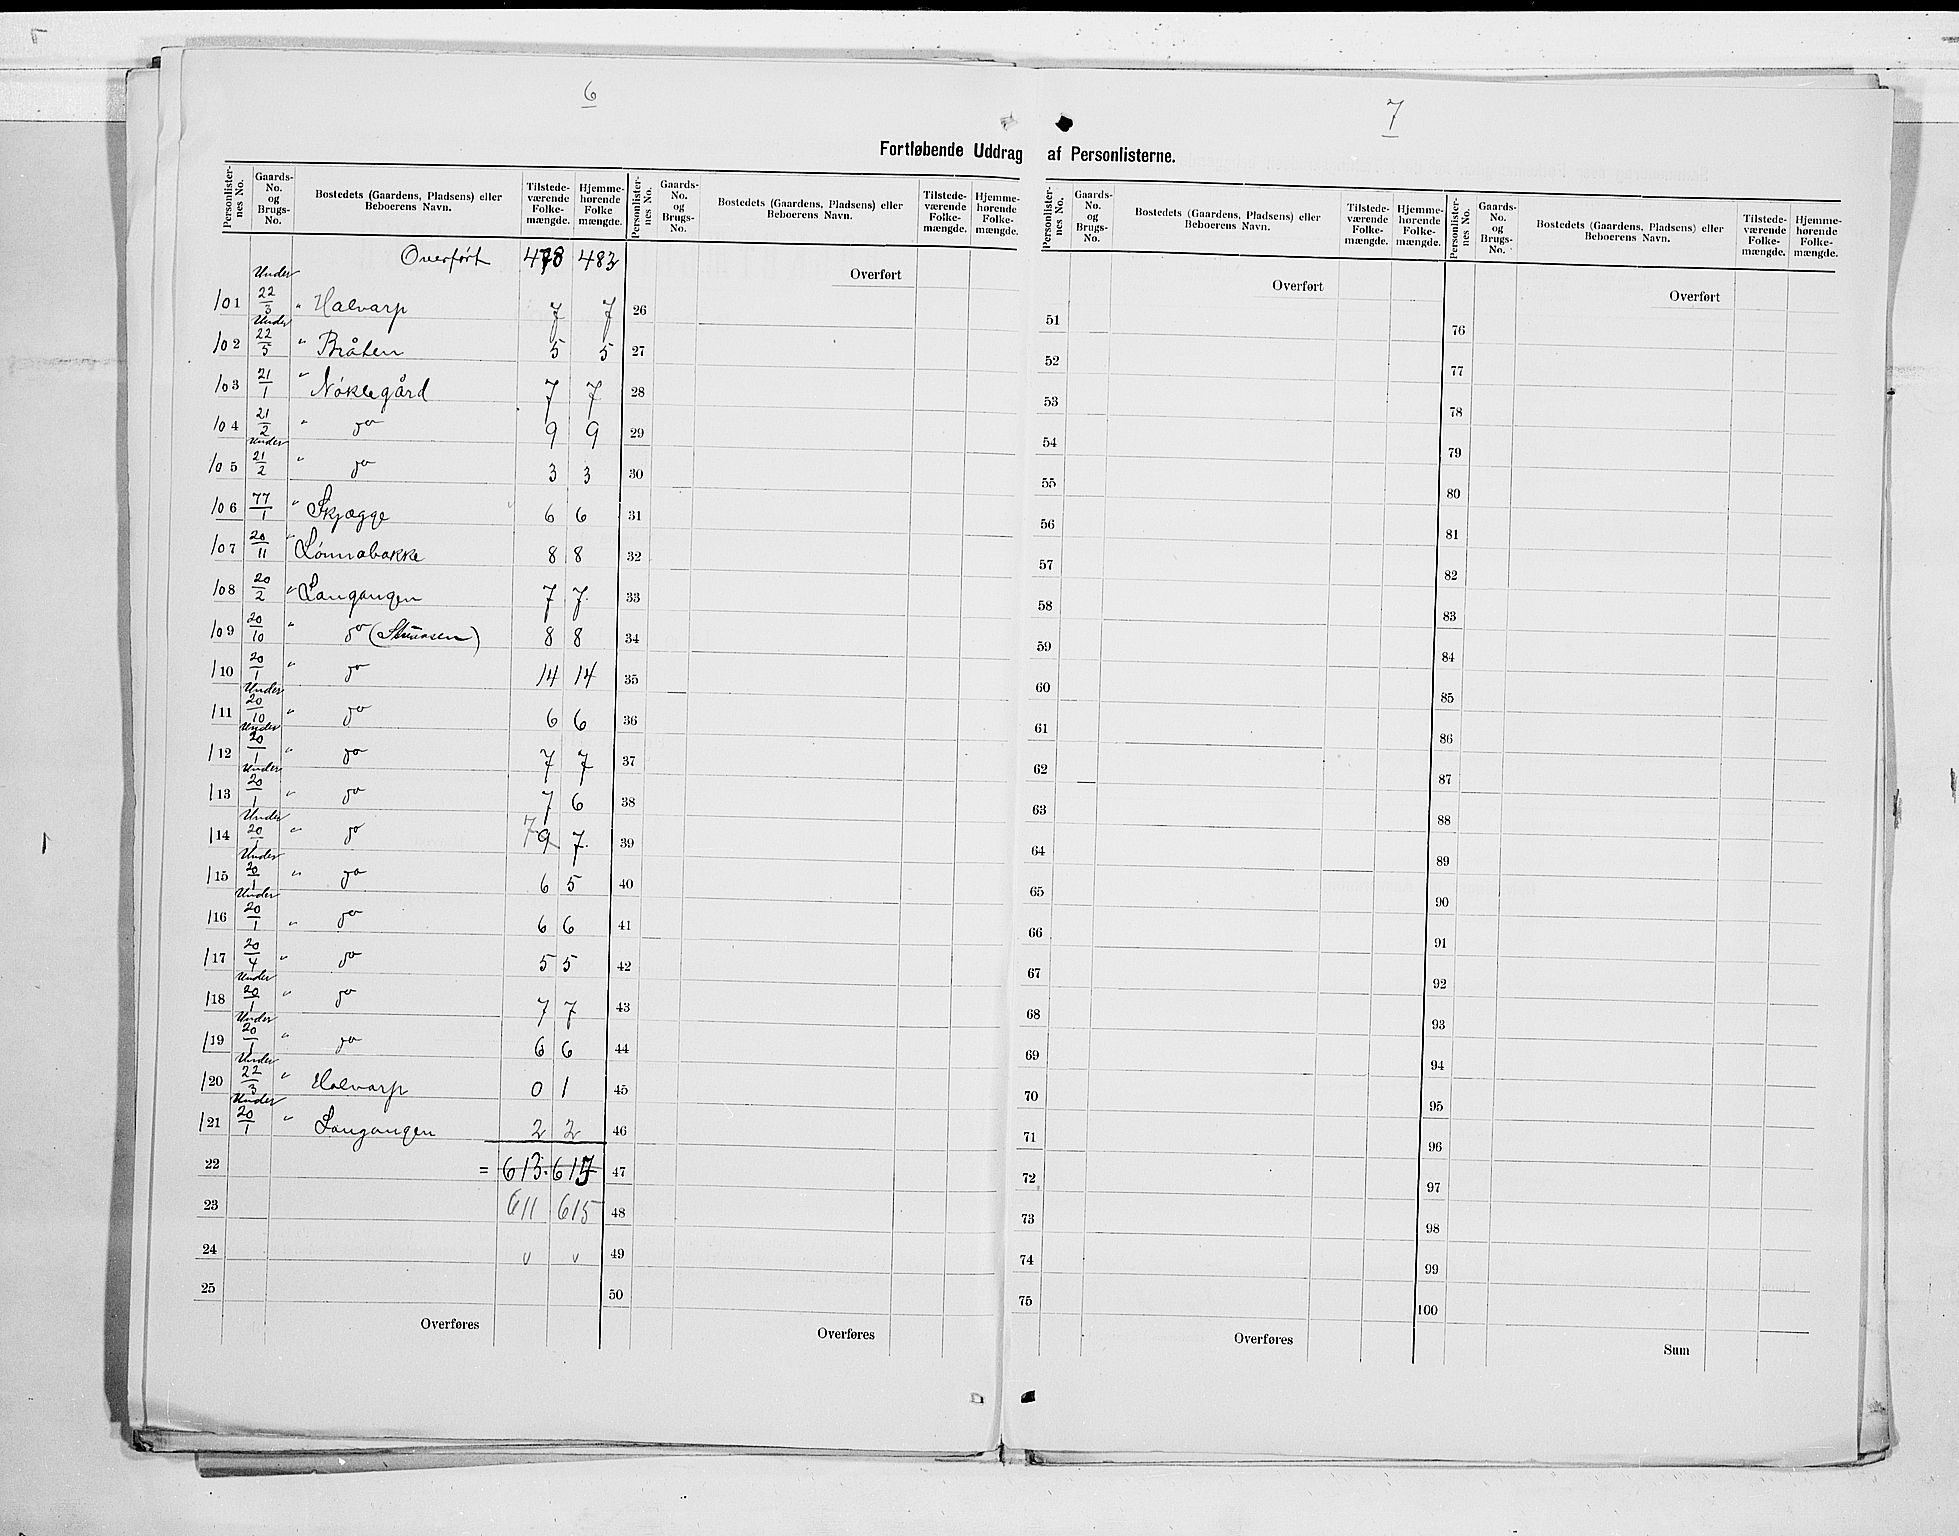 6
7
Fortløbende Uddrag af Personlisterne.
Personlister-nes No. Gaards-No. og Brugs-No. Bostedets (Gaardens, Pladsens) eller Beboerens Navn. Tilstede-værende Folke-mængde. Hjemme-hørende Folke mængde.
Personlister-nes No. Gaards-No. og Brugs-No. Bostedets (Gaardens, Pladsens) eller Beboerens Navn. Tilstede-værende Folke-mængde. Hjemme-hørende Folke-mængde.
Personlister-nes No. Gaards-No. og Brugs-No. Bostedets (Gaardens, Pladsens) eller Beboerens Navn. Tilstede-værende Folke-mængde. Hjemme-hørende Folke-mængde.
Personlister-nes No. Gaards-No. og Brugs-No. Bostedets (Gaardens, Pladsens) eller Beboerens Navn. Tilstede-værende Folke-mængde. Hjemme-hørende Folke-mængde.
Overført 478 483
101 Under 22/3 " Halvarp 7 7
102 Under 22/5 " Bråten 5 5
103 21/1 " Nøklegård 7 7
104 21/2 " do 9 9
105 Under 21/2 " do 3 3
106 77/1 " Skjægge 6 6
107 20/11 " Lønnebakke 8 8
108 20/2 " Langangen 7 7
109 20/10 " do 8 8
110 20/1 " do 14 14
111 Under 20/10 " do 6 6
112 Under 20/1 " do 7 7
113 Under 20/1 " do 7 6
114 Under 20/1 " do 7 9 7
115 Under 20/1 " do 6 5
116 Under 20/1 " do 6 6
117 20/4 " do 5 5
118 Under 20/1 " do 7 7
119 Under 20/1 " do 6 6
120 Under 22/3 " Halvarp 0 1
121 Under 20/1 " Langangen 2 2
22 = 613 617
23 611 615
24 v v
25
Overføres
Overført
26
27
28
29
30
31
32
33
34
35
36
37
38
39
40
41
42
43
44
45
46
47
48
49
50
Overføres
Overført
51
52
53
54
55
56
57
58
59
60
61
62
63
64
65
66
67
68
69
70
71
72
73
74
75
Overføres
Overført
76
77
78
79
80
81
82
83
84
85
86
87
88
89
90
91
92
93
94
95
96
97
98
99
100
Sum